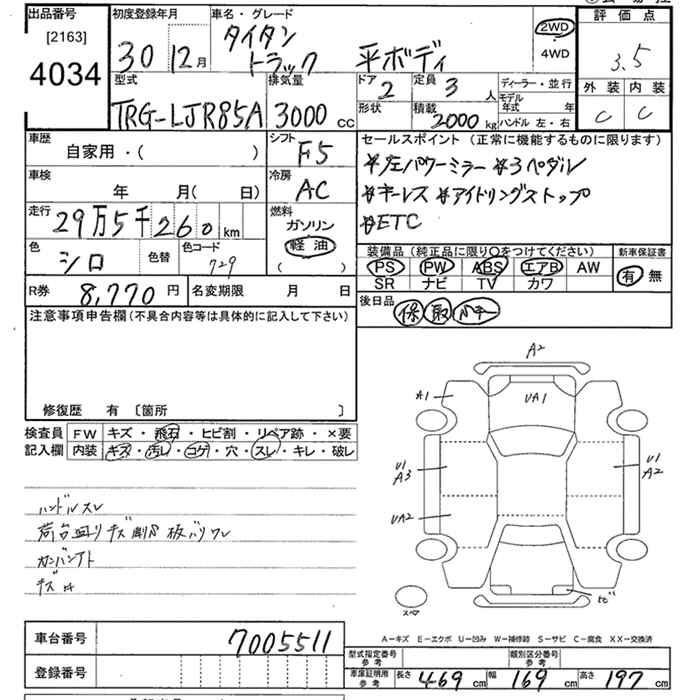 出品番号
[2163]
4034
初度登録年月
30 12月
車名・グレード
タイタン
トラック 平ボディ
2WD
・
4WD
評価点
3.5
外装 内装
C C
型式
TRG-LJR85A
排気量
3000 cc
ドア
2
定員
3 人
ディーラー・並行
形状
積載
2000 kg
モデル
年式 年
ハンドル 左・右
車歴
自家用・( )
シフト
F5
セールスポイント (正常に機能するものに限ります)
*左パワーミラー *3ペダル
*キーレス *アイドリングストップ
*ETC
車検
年 月( 日)
冷房
AC
走行
29万5千260 km
燃料
ガソリン
軽油
( )
色
シロ
色替
色コード
729
装備品 (純正品に限り○をつけてください)
新車保証書
PS PW ABS エアB AW
SR ナビ TV カワ
有 無
R券 8,770 円
名変期限 月 日
後日品
保 取
注意事項申告欄 (不具合内容等は具体的に記入して下さい)
修復歴 有 〔箇所 〕
検査員
記入欄
FW キズ・飛石・ヒビ割・リペア跡・×要
内装 キズ・汚レ・コゲ・穴・スレ・キレ・破レ
ハンドルスレ
荷台回りキズ 板バリワレ
キズ
A2
A1
UA1
U1
A3
U1
A2
UA2
サビ
スペア
A−キズ E−エクボ U−凹み W−補修跡 S−サビ C−腐食 XX−交換済
車台番号 7005511
登録番号
型式指定番号
参考
類別区分番号
参考
車庫証明用
参考
長さ 469 cm 幅 169 cm 高さ 197 cm